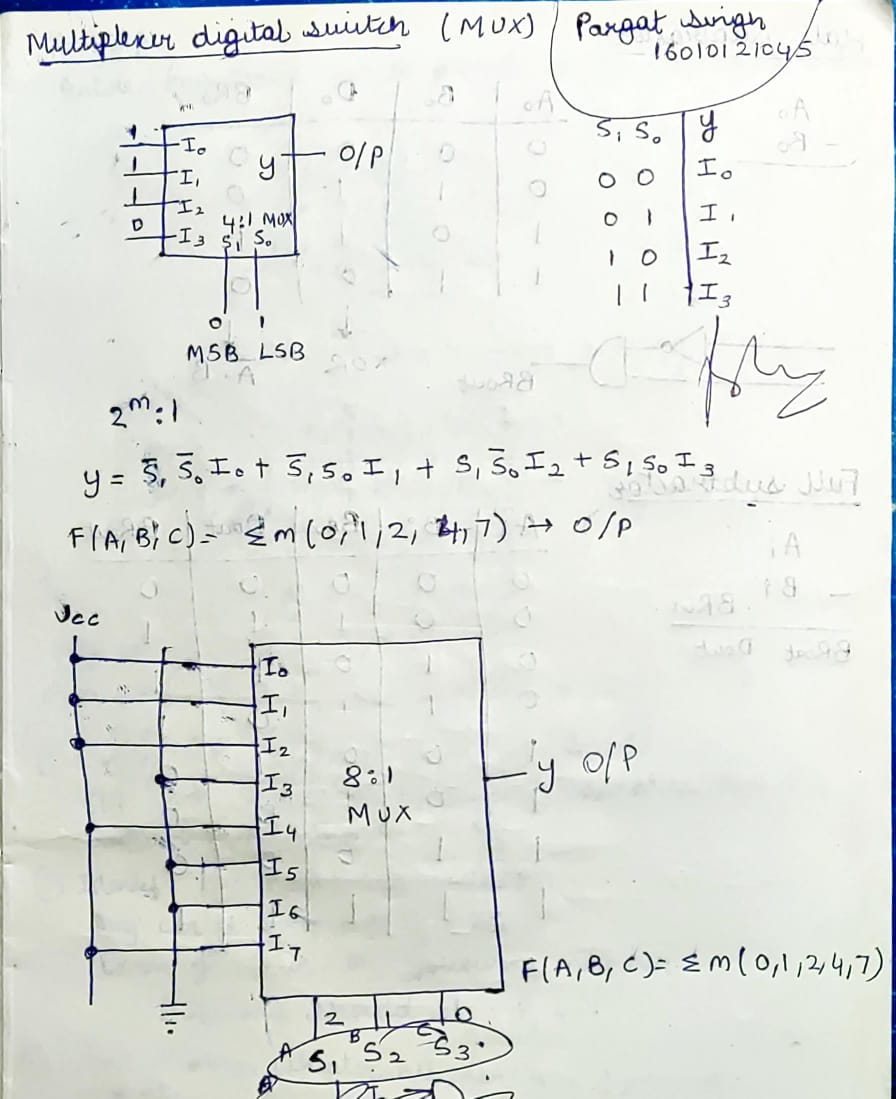 Multiplexer digital switch (MUX)
Pargat Singh
16010121045
1 I₀
1 I₁
1 I₂
0 I₃
y O/P
4:1 MUX
S₁ S₀
0 1
MSB LSB
S₁ S₀ y
0 0 I₀
0 1 I₁
1 0 I₂
1 1 I₃
2ᵐ:1
y = S̅₁ S̅₀ I₀ + S̅₁ S₀ I₁ + S₁ S̅₀ I₂ + S₁ S₀ I₃
F(A, B, C) = Σm(0, 1, 2, 4, 7) → O/P
Vcc
I₀
I₁
I₂
I₃
I₄
I₅
I₆
I₇
8:1
MUX
y O/P
F(A, B, C) = Σm(0,1,2,4,7)
2 1 0
A B C
S₁ S₂ S₃